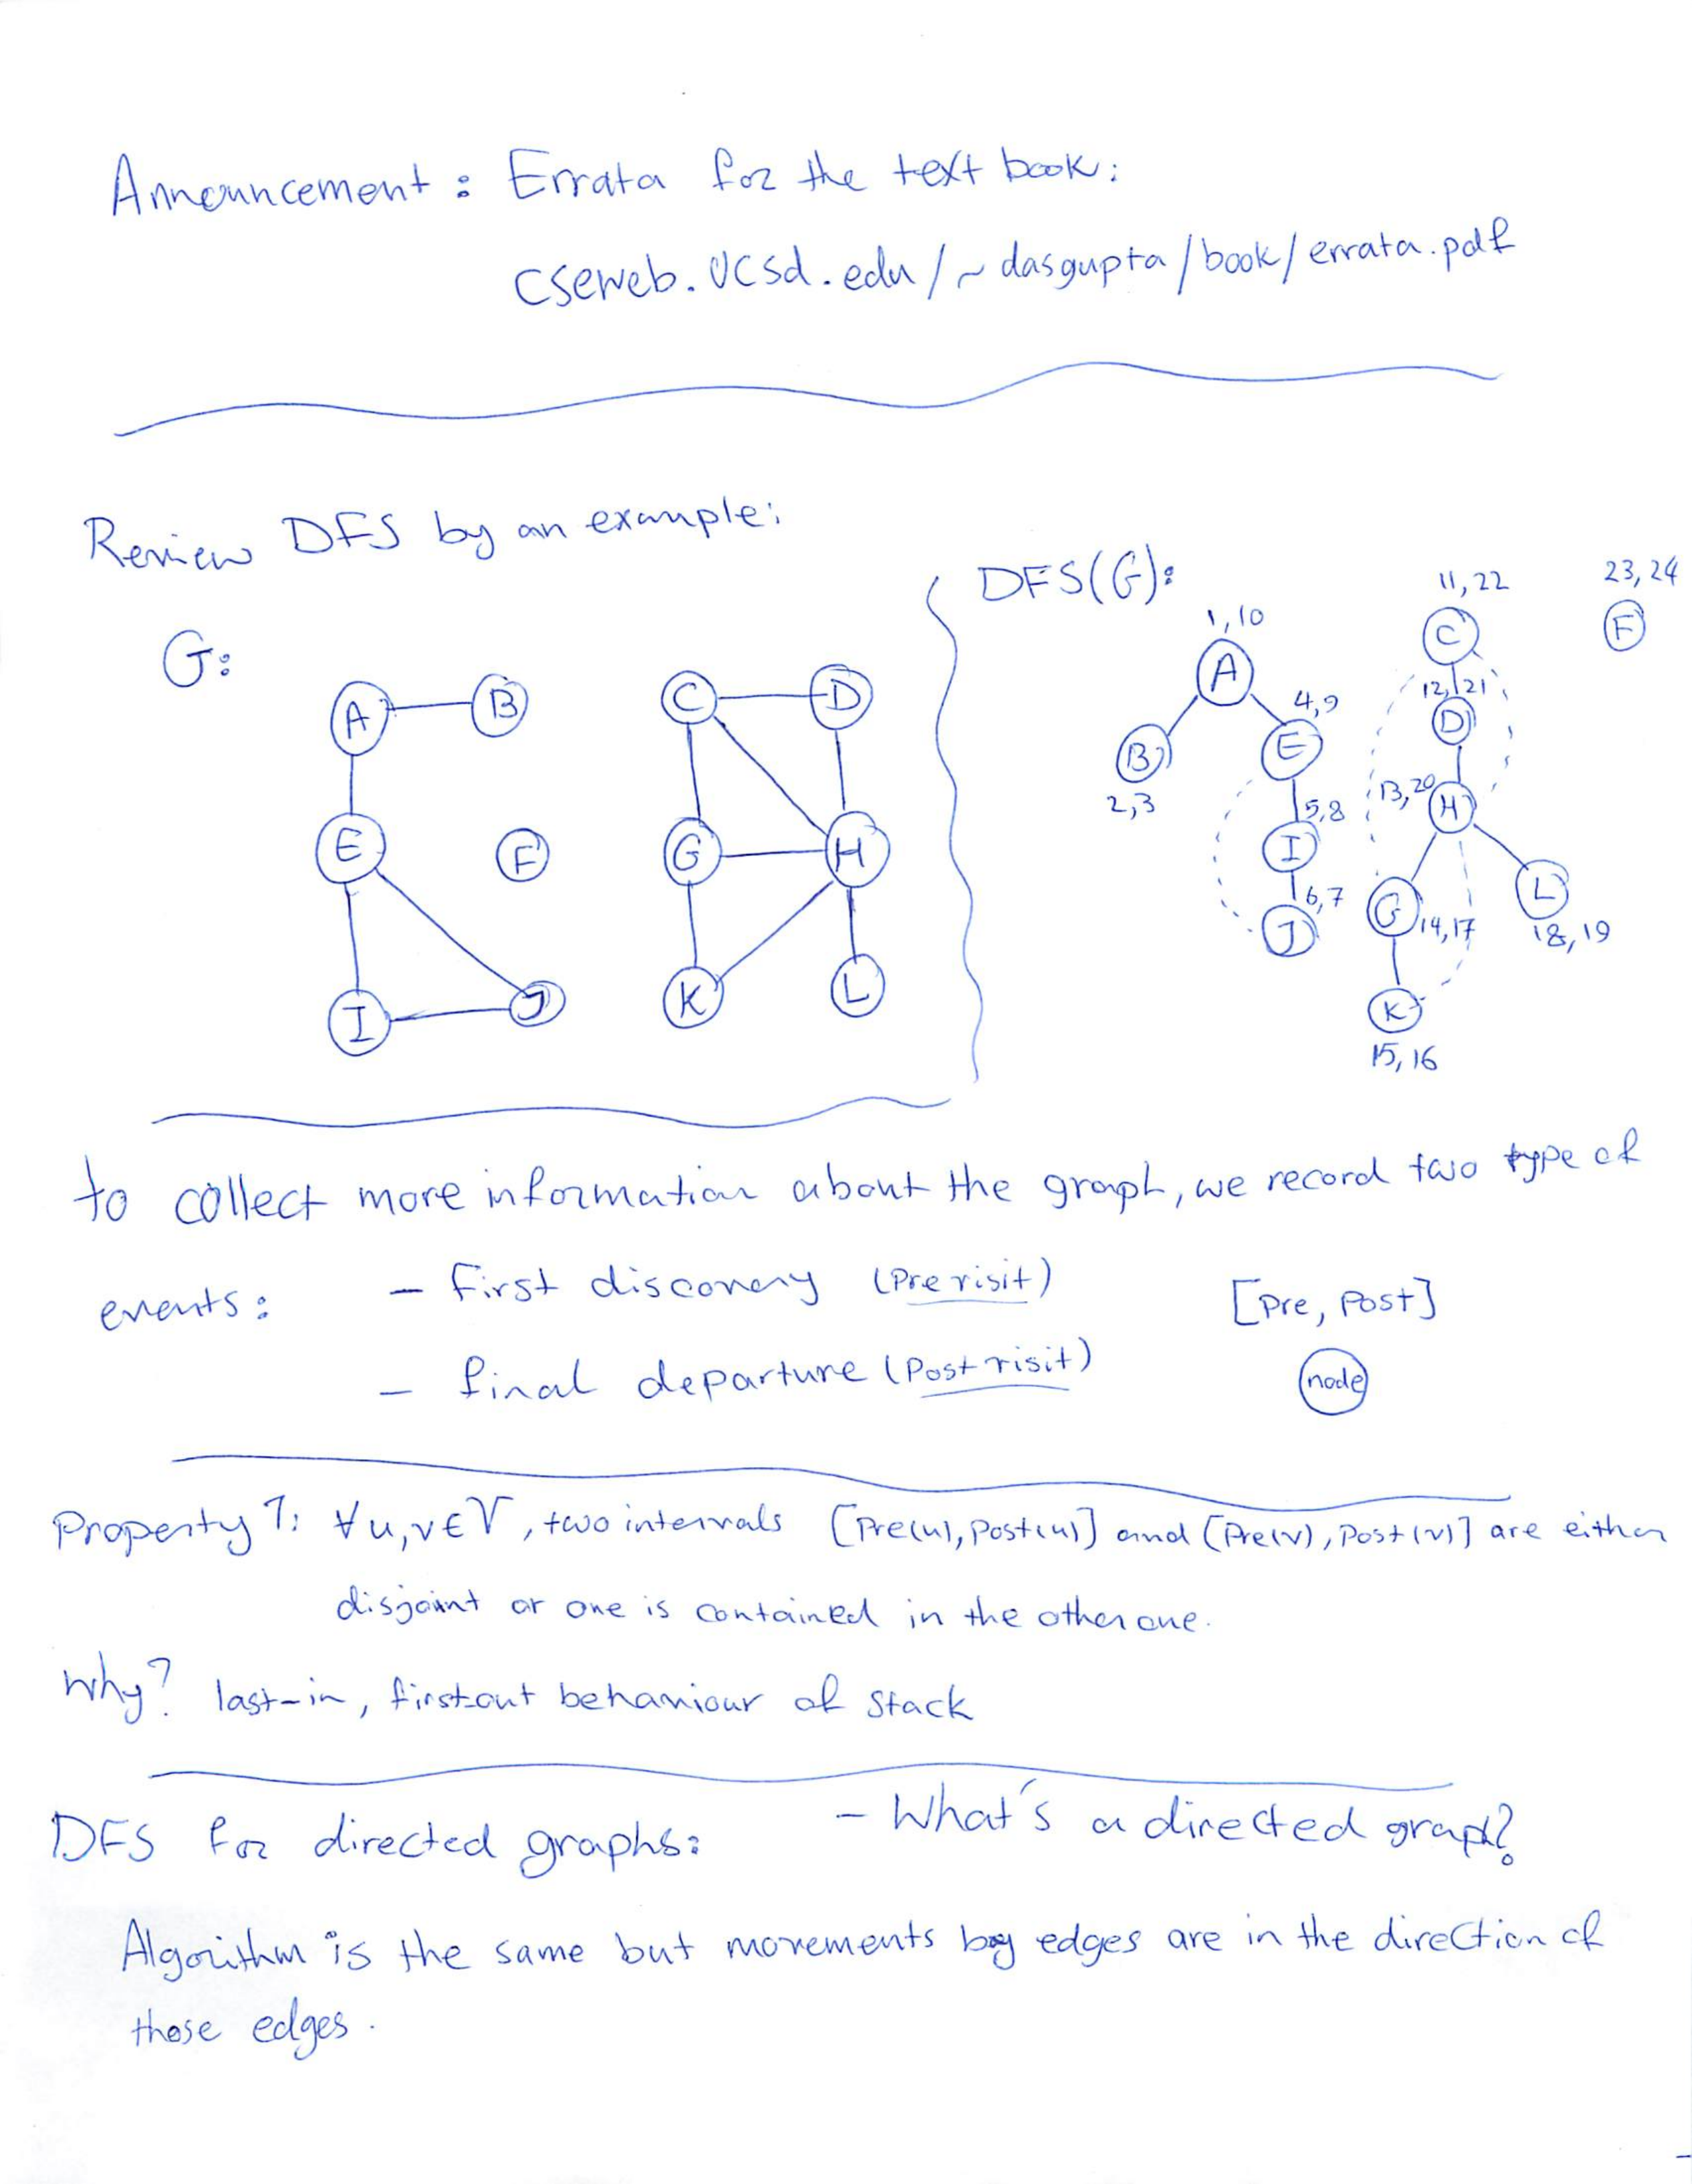 Announcement : Errata for the text book:
cseweb.ucsd.edu/~dasgupta/book/errata.pdf
Review DFS by an example:
G:
A B C D
E F G H
I J K L
DFS(G):
1,10 11,22 23,24
A C F
4,9 12,21
B E D
2,3 5,8 13,20
I H
6,7
J G 14,17 L
18,19
K
15,16
to collect more information about the graph, we record two type of
events: – first discovery (Previsit) [Pre, Post]
– final departure (Postvisit) node
Property 1: ∀u,v∈V, two intervals [Pre(u), Post(u)] and [Pre(v), Post(v)] are either
disjoint or one is contained in the other one.
why? last-in, first-out behaviour of stack
DFS for directed graphs: – What's a directed graph?
Algorithm is the same but movements by edges are in the direction of
those edges.